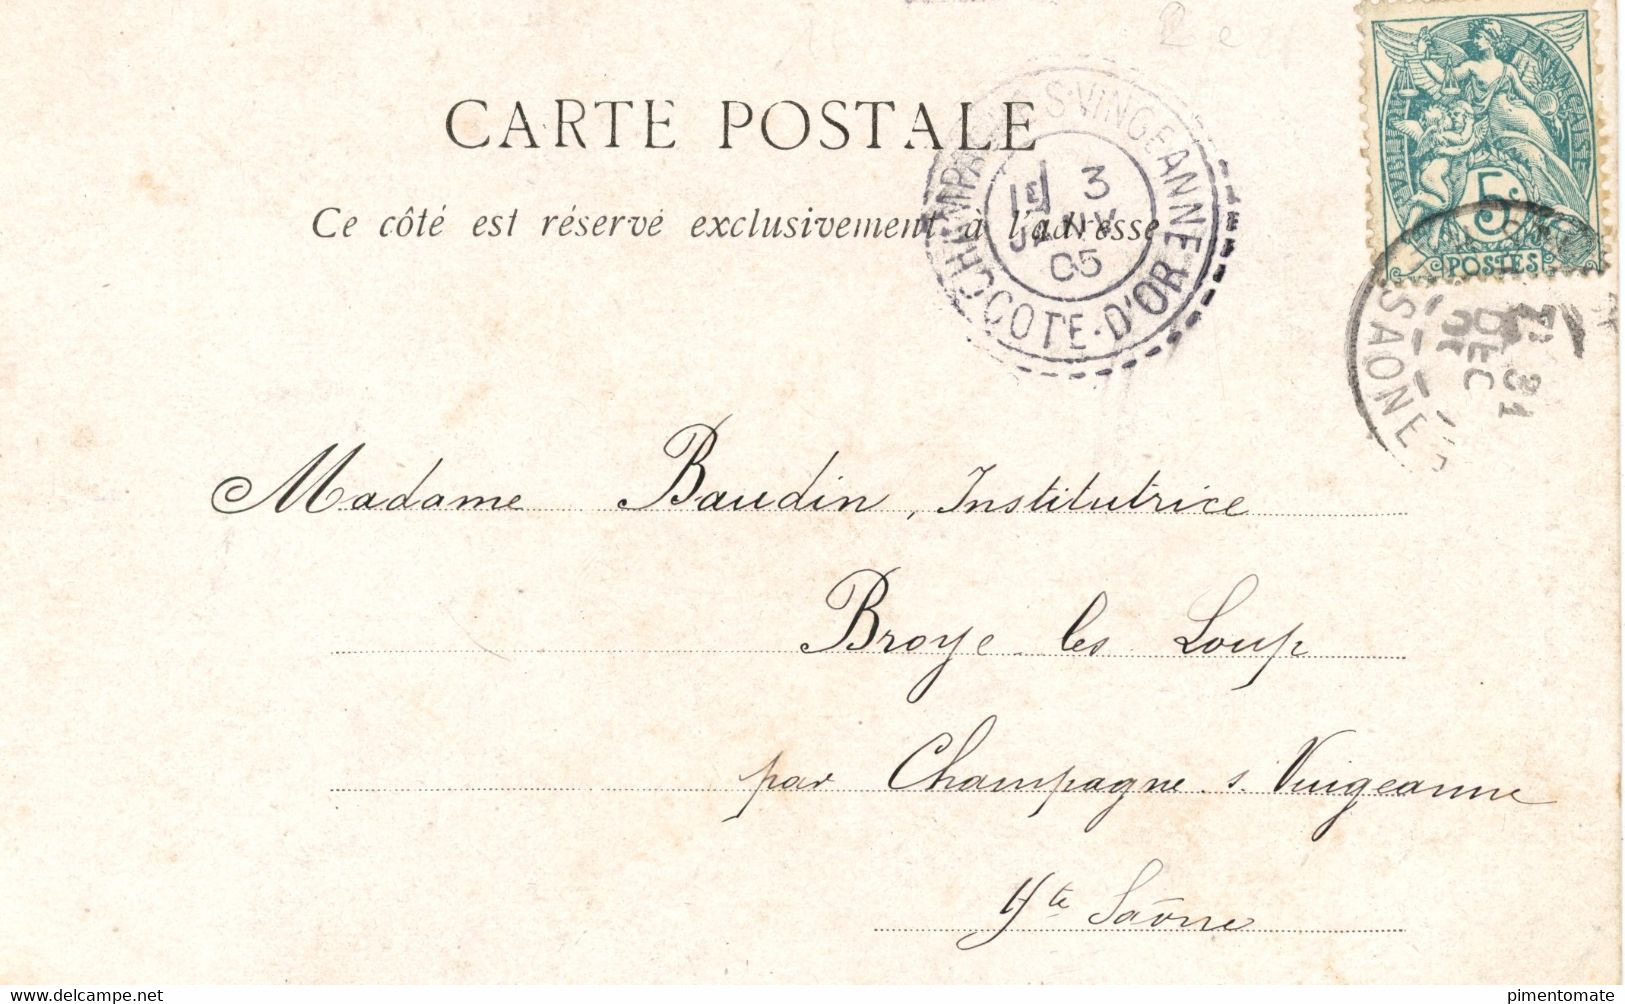 CARTE POSTALE
Ce côté est réservé exclusivement à l'adresse
S·VINGEANNE
3
JANV
05
COTE-D'OR
5c
POSTES
SAONE
31
DEC
Madame Baudin, Institutrice
Broye-les Loup
par Champagne s. Vingeanne
Hte Saône
www.delcampe.net
pimentomate